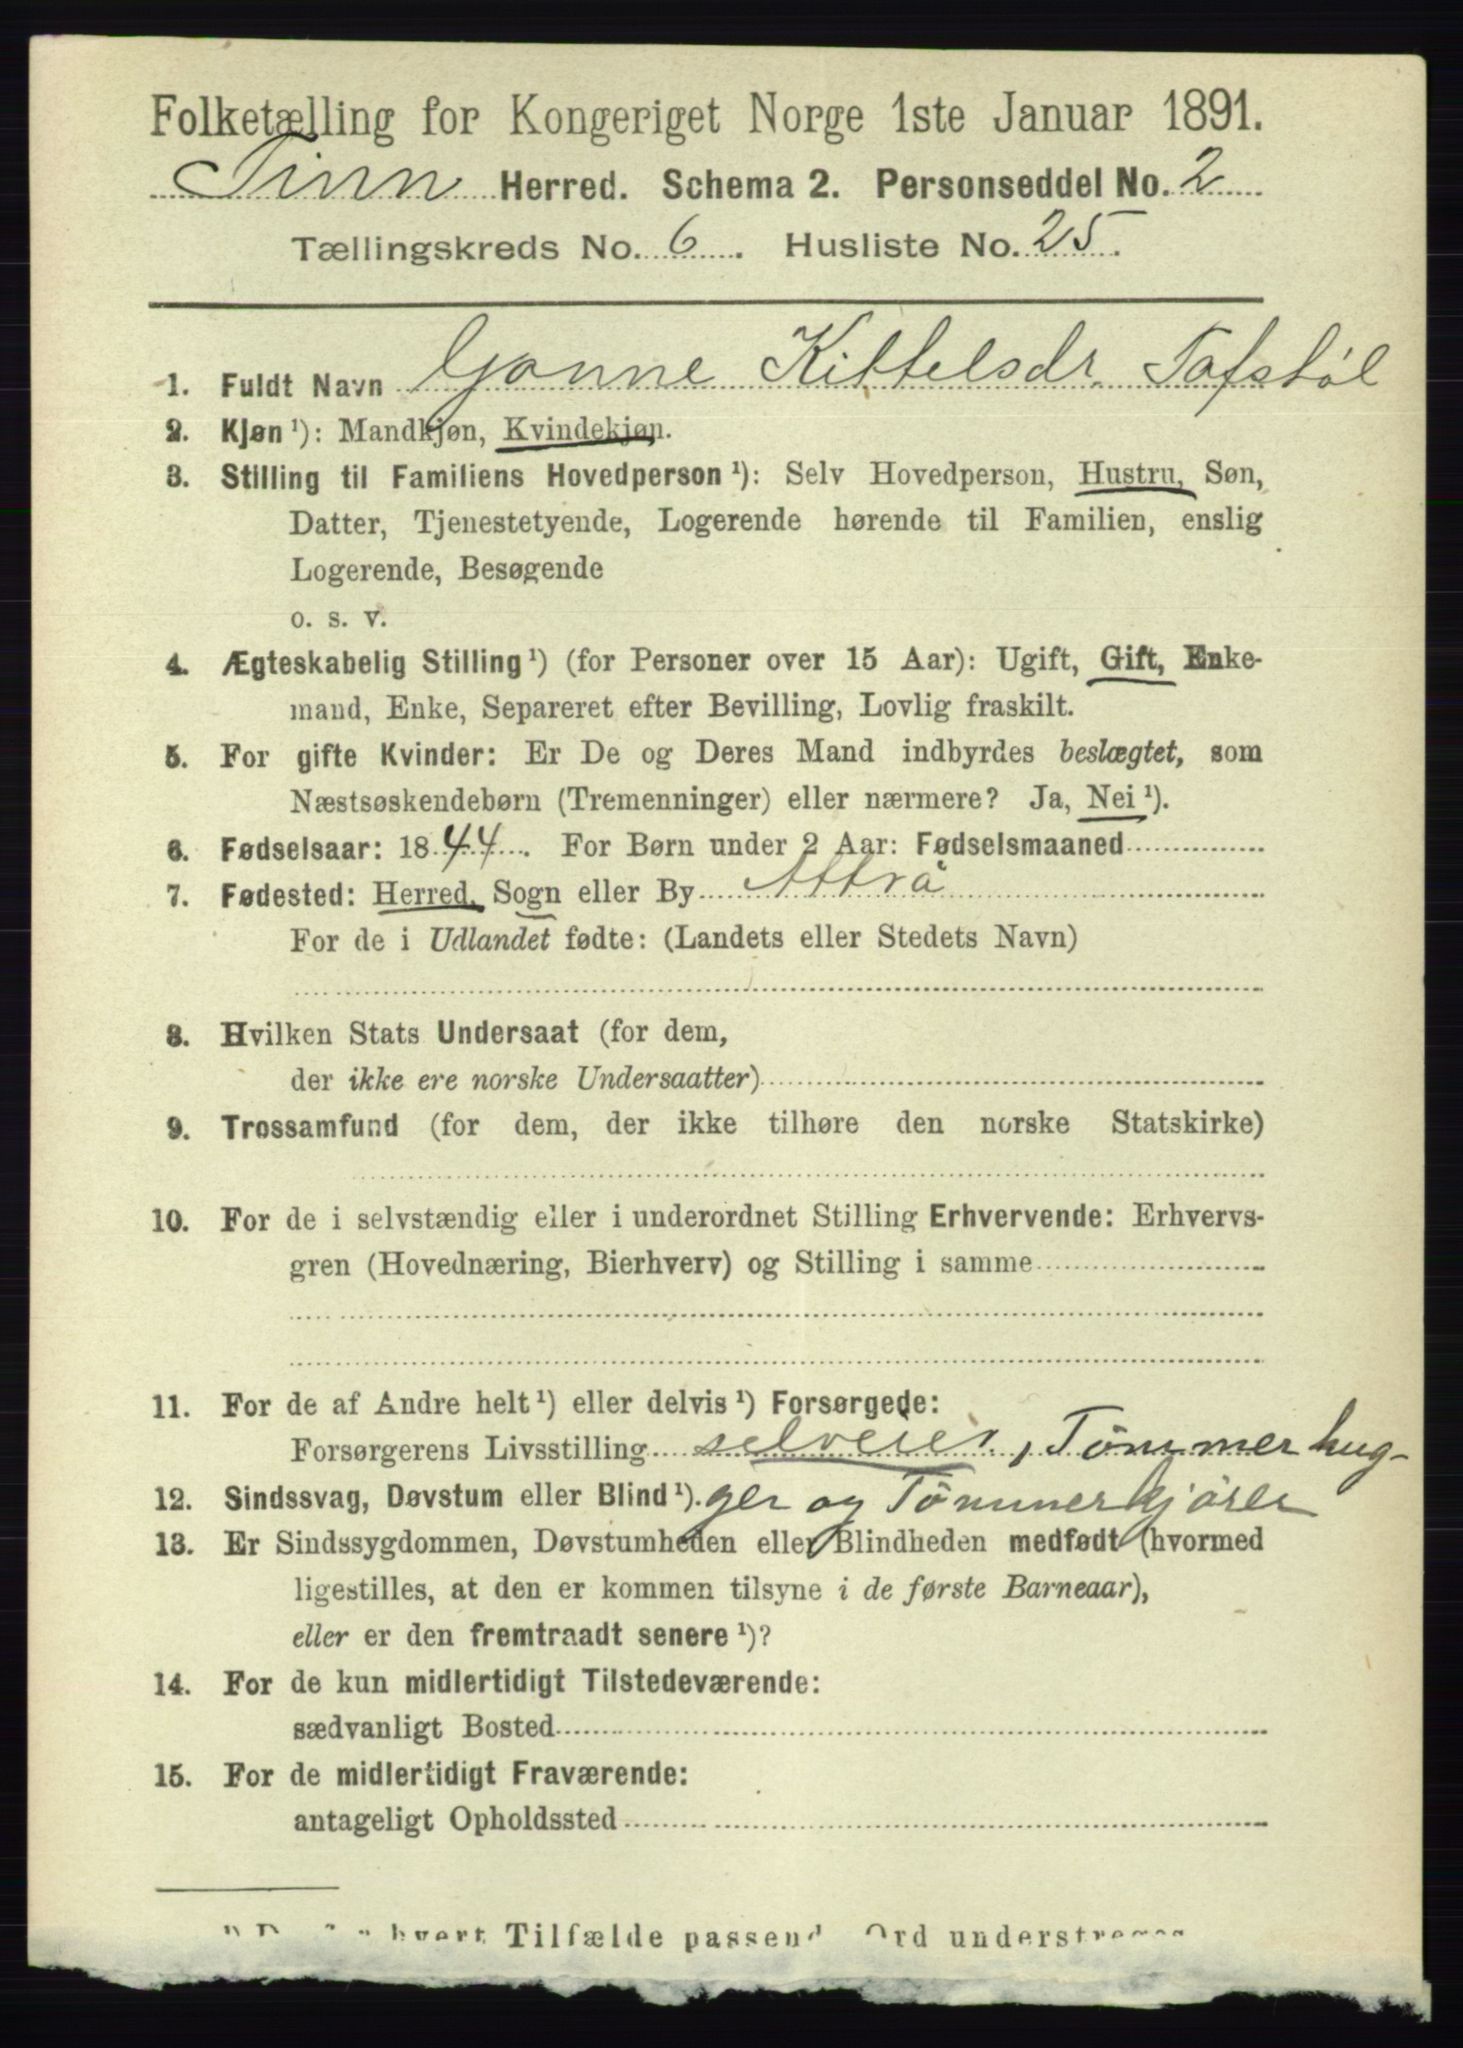 Folketælling for Kongeriget Norge 1ste Januar 1891.
Tinn Herred. Schema 2. Personseddel No. 2
Tællingskreds No. 6. Husliste No. 25.
1. Fuldt Navn Gonne Kittelsdr. Tofstøl
2. Kjøn ¹): Mandkjøn, Kvindekjøn.
3. Stilling til Familiens Hovedperson ¹): Selv Hovedperson, Hustru, Søn,
Datter, Tjenestetyende, Logerende hørende til Familien, enslig
Logerende, Besøgende
o. s. v.
4. Ægteskabelig Stilling ¹) (for Personer over 15 Aar): Ugift, Gift, Enke-
mand, Enke, Separeret efter Bevilling, Lovlig fraskilt.
5. For gifte Kvinder: Er De og Deres Mand indbyrdes beslægtet, som
Næstsøskendebørn (Tremenninger) eller nærmere? Ja, Nei ¹).
6. Fødselsaar: 1844. For Børn under 2 Aar: Fødselsmaaned
7. Fødested: Herred, Sogn eller By Attrå
For de i Udlandet fødte: (Landets eller Stedets Navn)
8. Hvilken Stats Undersaat (for dem,
der ikke ere norske Undersaatter)
9. Trossamfund (for dem, der ikke tilhøre den norske Statskirke)
10. For de i selvstændig eller i underordnet Stilling Erhvervende: Erhvervs-
gren (Hovednæring, Bierhverv) og Stilling i samme
11. For de af Andre helt ¹) eller delvis ¹) Forsørgede:
Forsørgerens Livsstilling selveier, Tömmerhug-
12. Sindssvag, Døvstum eller Blind ¹). ger og Tömmerkjörer
13. Er Sindssygdommen, Døvstumheden eller Blindheden medfødt (hvormed
ligestilles, at den er kommen tilsyne i de første Barneaar),
eller er den fremtraadt senere ¹)?
14. For de kun midlertidigt Tilstedeværende:
sædvanligt Bosted
15. For de midlertidigt Fraværende:
antageligt Opholdssted
hvert Tilfælde passende Ord understreges